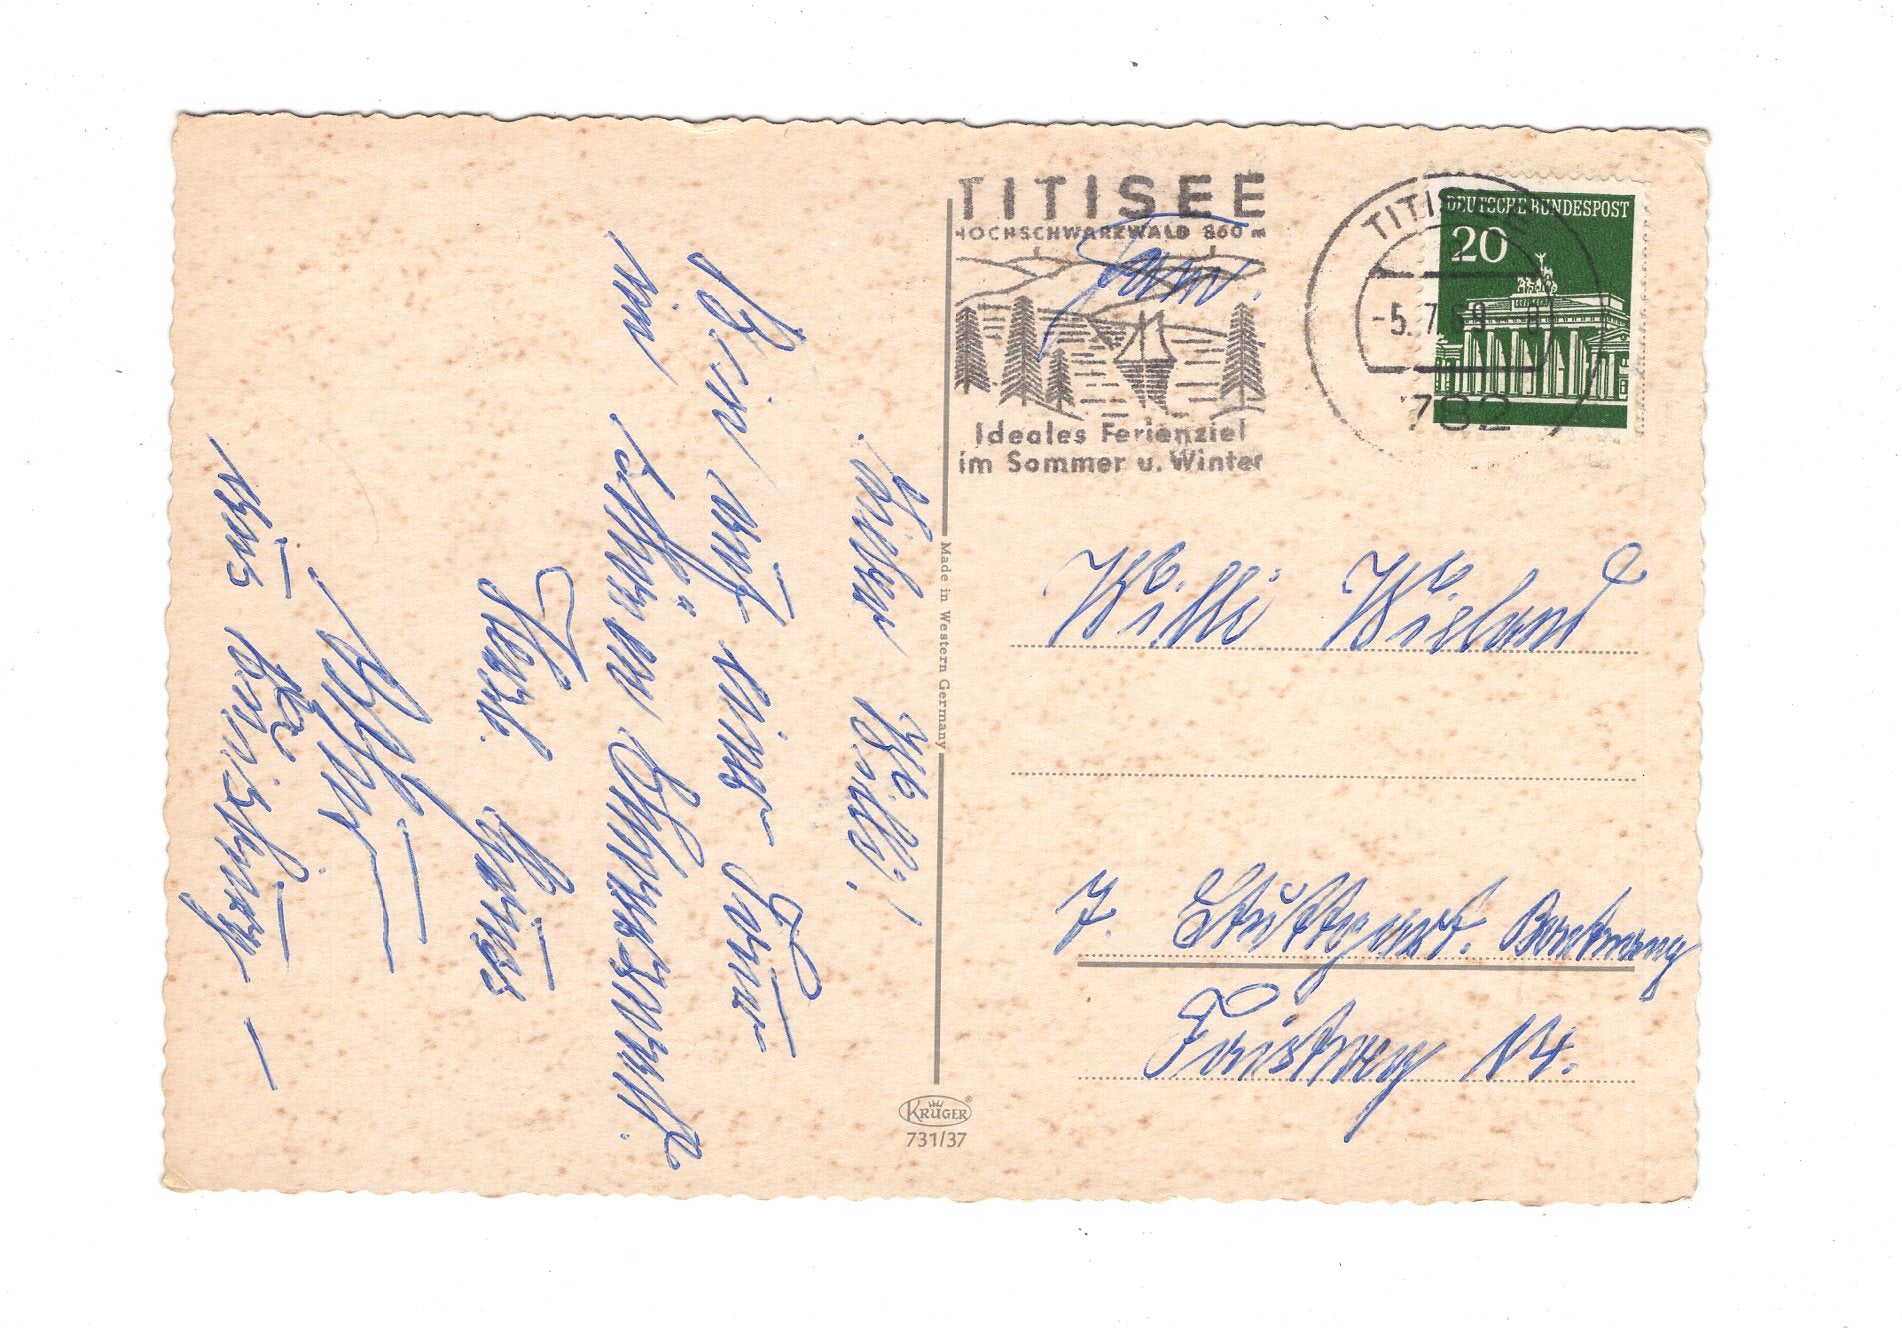 TITISEE
HOCHSCHWARZWALD 860 m
Ideales Ferienziel
im Sommer u. Winter
TITISEE
-5.7. 9
782
DEUTSCHE BUNDESPOST
20
Fam.
Willi Wieland
7. Stuttgart. Botnang
Furtweg 14.
Lieber Willi!
Bin auf einer Tour
im schönen Schwarzwald.
Herzl. Grüße
Made in Western Germany
KRÜGER®
731/37